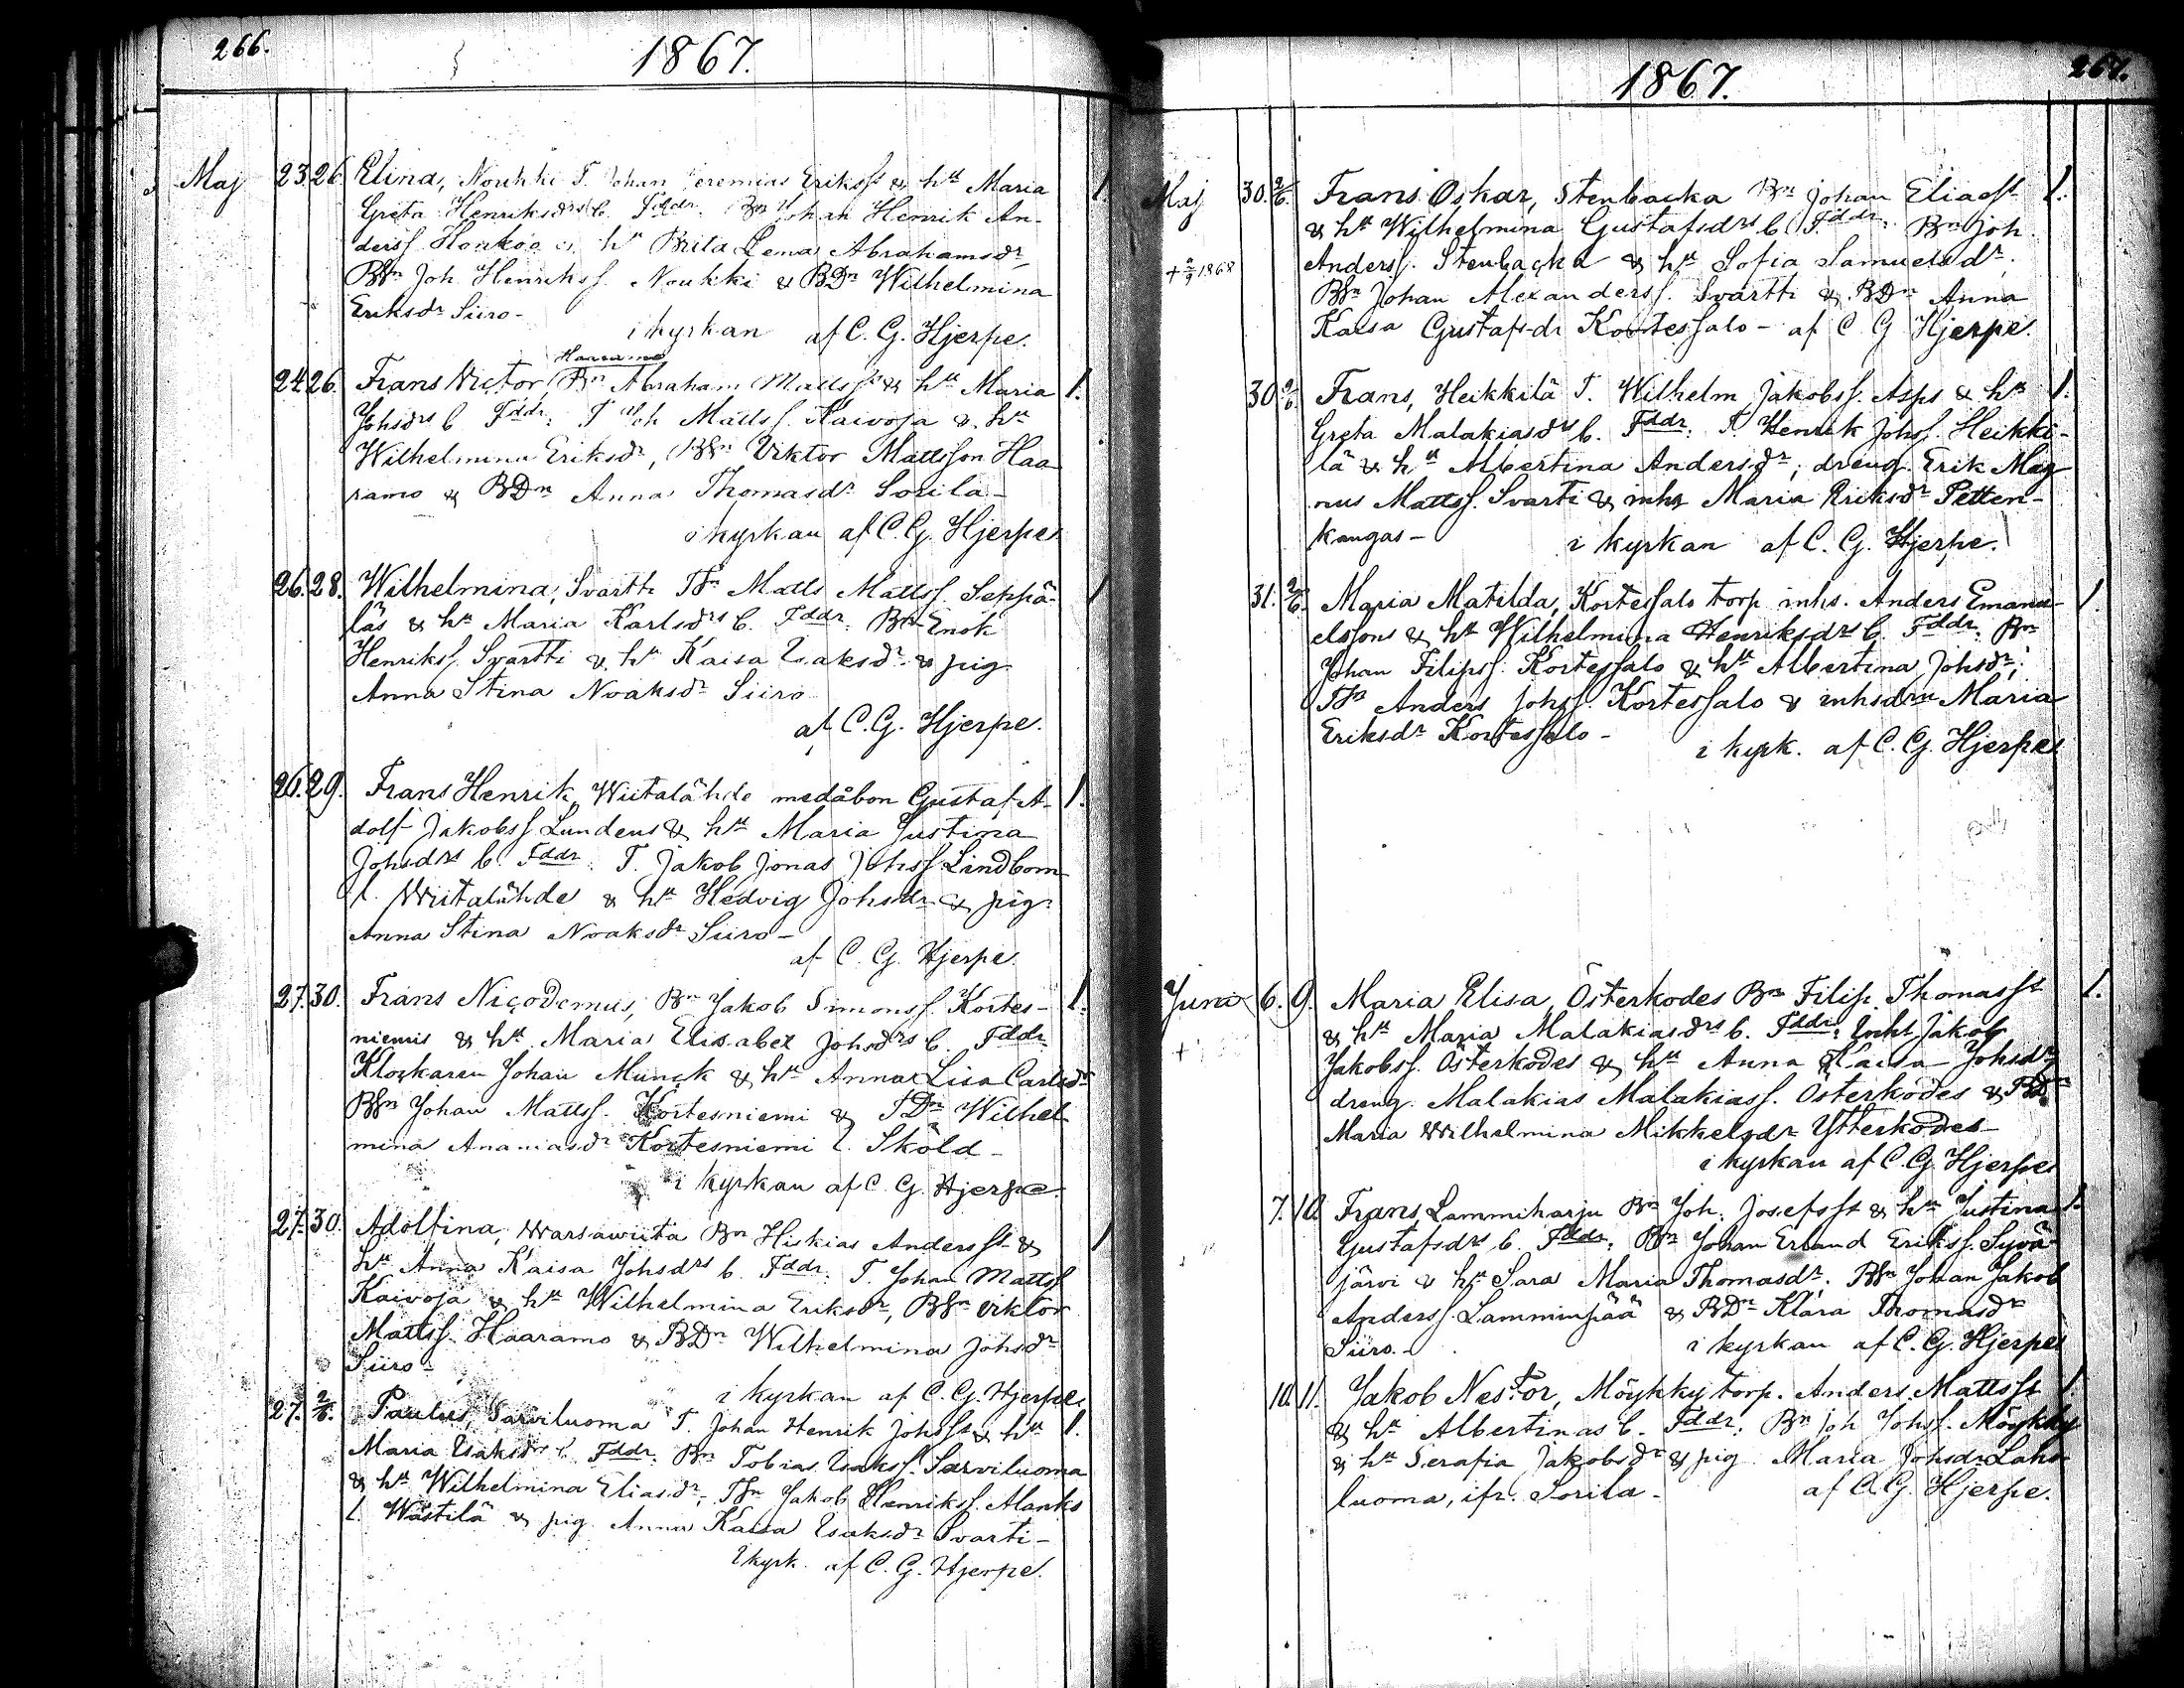 266.
1867.
Maj 23. 26. Elina, Noukki T. Johan Jeremias Erikss. & hu Maria 1.
Greta Henriksdrs b. Fddr. Bn Johan Henrik An-
derss. Honkoo & hu Brita Lena Abrahamsdr,
BSn Joh Henrikss. Noukki & BDn Wilhelmina
Eriksdr Siiro-
i kyrkan af C. G. Hjerpe.
Haaramo
24. 26. Frans Victor, Bn Abraham Mattss. & hu Maria 1.
Johsdrs b. Fddr: T. Joh Mattss. Kaivoja & hu
Wilhelmina Eriksdr, BSn Viktor Mattsson Haa-
ramo & BDn Anna Thomasdr Sorila-
i kyrkan af C. G. Hjerpe
26. 28. Wilhelmina, Svartti TSn Matts Mattss. Seppä- 1
läs & hu Maria Karlsdrs b. Fddr: Bn Enok
Henrikss. Svartti & hu Kaisa Isaksdr & pig.
Anna Stina Noaksdr Siiro
af C. G. Hjerpe.
26. 29. Frans Henrik, Wiitalähde medåbon Gustaf A- 1.
dolf Jakobss. Lundens & hu Maria Justina
Johsdrs b. Fddr: T. Jakob Jonas Johss. Lindbom
l. Wiitalähde & hu Hedvig Johsdr & pig.
Anna Stina Noaksdr Siiro-
af C. G. Hjerpe.
27. 30. Frans Nicodemus, Bn Jakob Simonss. Kortes- 1.
niemis & hu Maria Elisabet Johsdrs b. Fddr:
Klockaren Johan Munck & hu Anna Lisa Carlsdr
BSn Johan Mattss. Kortesniemi & TDn Wilhel
mina Ananiasdr Kortesniemi l. Sköld-
i kyrkan af C. G. Hjerpe.
27. 30. Adolfina, Warsawiita Bn Hiskias Anderss. & 1
hu Anna Kaisa Johsdrs b. Fddr: T. Johan Mattss.
Kaivoja & hu Wilhelmina Eriksdr, BSn Viktor
Mattss. Haaramo & BDn Wilhelmina Johsdr
Siiro-
i kyrkan af C. G. Hjerpe.
27. 2/6. Paulus, Sarviluoma T. Johan Henrik Johss. & hu 1.
Maria Isaksdrs b. Fddr: Bn Tobias Isakss. Sarviluoma
& hu Wilhelmina Eliasdr, TSn Jakob Henrikss. Alanko
l. Wästilä & pig. Anna Kaisa Isaksdr Svarti-
i kyrk. af C. G. Hjerpe.
267.
1867.
Maj 30. 2/6. Frans Oskar, Stenbacka Bn Johan Eliass. 1.
& hu Wilhelmina Gustafsdrs b. Fddr: Bn Joh.
Anderss. Stenbacka & hu Sofia Samuelsdr,
1868
BSn Johan Alexanderss. Svartti & BDn Anna
Kaisa Gustafsdr Kortessalo- af C G Hjerpe.
30. 2/6. Frans, Heikkilä T. Wilhelm Jakobss. Asps & hu 1.
Greta Malakiasdrs b. Fddr: T. Henrik Johss. Heikki-
lä & hu Albertina Andersdr; dreng. Erik Mag
nus Mattss. Svarti & inhs Maria Eriksdr Petten-
kangas-
i kyrkan af C. G. Hjerpe.
31. 2/6. Maria Matilda, Kortessalo torp inhs. Anders Emanu- 1.
elssons & hu Wilhelmina Henriksdrs b. Fddr: Bn
Johan Filipss. Kortessalo & hu Albertina Johsdr;
TSn Anders Johss. Kortessalo & inhsdrn Maria
Eriksdr Kortessalo-
i kyrk. af C. G. Hjerpe
Juni 6. 9. Maria Elisa, Österkodes Bn Filip Thomass. 1.
& hu Maria Malakiasdrs b. Fddr: Inhs Jakob
Jakobss. Österkodes & hu Anna Kaisa Johsdr
dreng. Malakias Malakiass. Österkodes & BDn
Maria Wilhelmina Mikkelsdr Ytterkodes-
i kyrkan af C. G. Hjerpe
7. 10. Frans Lammiharju Bn Joh. Josefss. & hu Justina 1.
Gustafsdrs b. Fddr: Bn Johan Erland Erikss. Syvä-
järvi & hu Sara Maria Thomasdr. BSn Johan Jakob
Anderss. Lamminpää & BDn Klara Thomasdr
Siiro.-
i kyrkan af C. G. Hjerpe
10. 11. Jakob Nestor, Möykky torp. Anders Mattss. 1
& hu Albertinas b. Fddr: Bn Joh Johss. Möykky
& hu Serafia Jakobsdr & pig. Maria Johsdr Laho-
luoma, ifr. Sorila-
af C. G. Hjerpe.